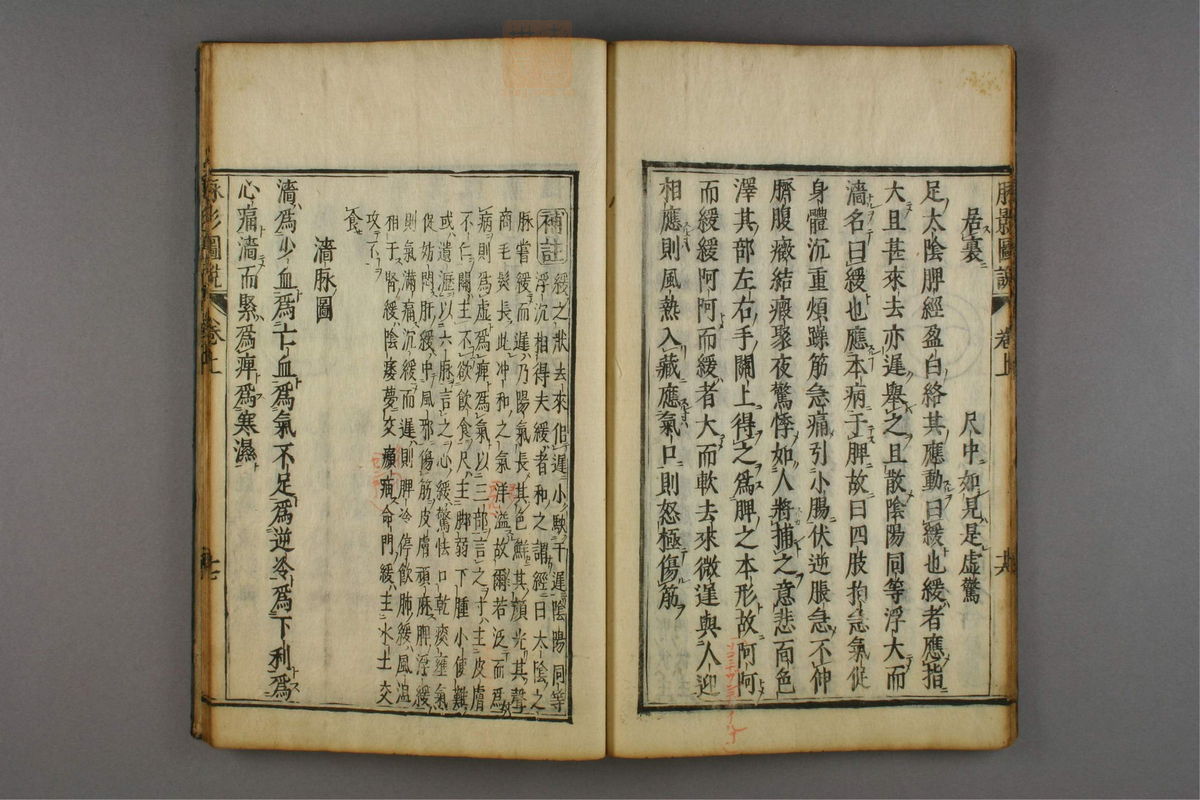 居裏 尺中如見是虚驚
足太陰脾經盈白絡其應動曰緩也緩者應指
大且甚來去亦遲舉之且散陰陽同等浮大而
濇名曰緩也應本病于脾故曰四肢拘急氣促
身體沉重煩躁筋急痛引小腸伏逆脹急不伸
臍腹癥結瘕聚夜驚悸如人將捕之意悲面色
澤其部左右手關上得之爲脾之本形故阿阿
而緩緩阿阿而緩者大而軟去來微遲與人迎
相應則風熱入藏應氣口則怒極傷筋
脉影圖説 卷上
補註 緩之狀去來佀遲小駃于遲陰陽同等
浮沉相得夫緩者和之謂經曰太陰之
脉嘗緩而遲乃陽氣長其色鮮其顔光其聲
商毛髮長此冲和之氣洋溢故爾若泛而爲
病則爲虚爲痺爲氣以三部言之寸主皮膚
不仁關主不欲飲食尺主脚弱下腫小便難
或遺瀝以六脉言之心緩驚怯口乾痰壅氣
促妨悶肝緩中風邪傷筋皮膚頑麻脾浮緩
則氣滿痛沉緩而遲則脾冷停飲肺緩風温
相于腎緩陰痿夢交癲痴命門緩主水土交
攻不食
濇脉圖
濇爲少血爲亡血爲氣不足爲逆冷爲下利爲
心痛濇而緊爲痺爲寒濕
脉影圖説 卷上